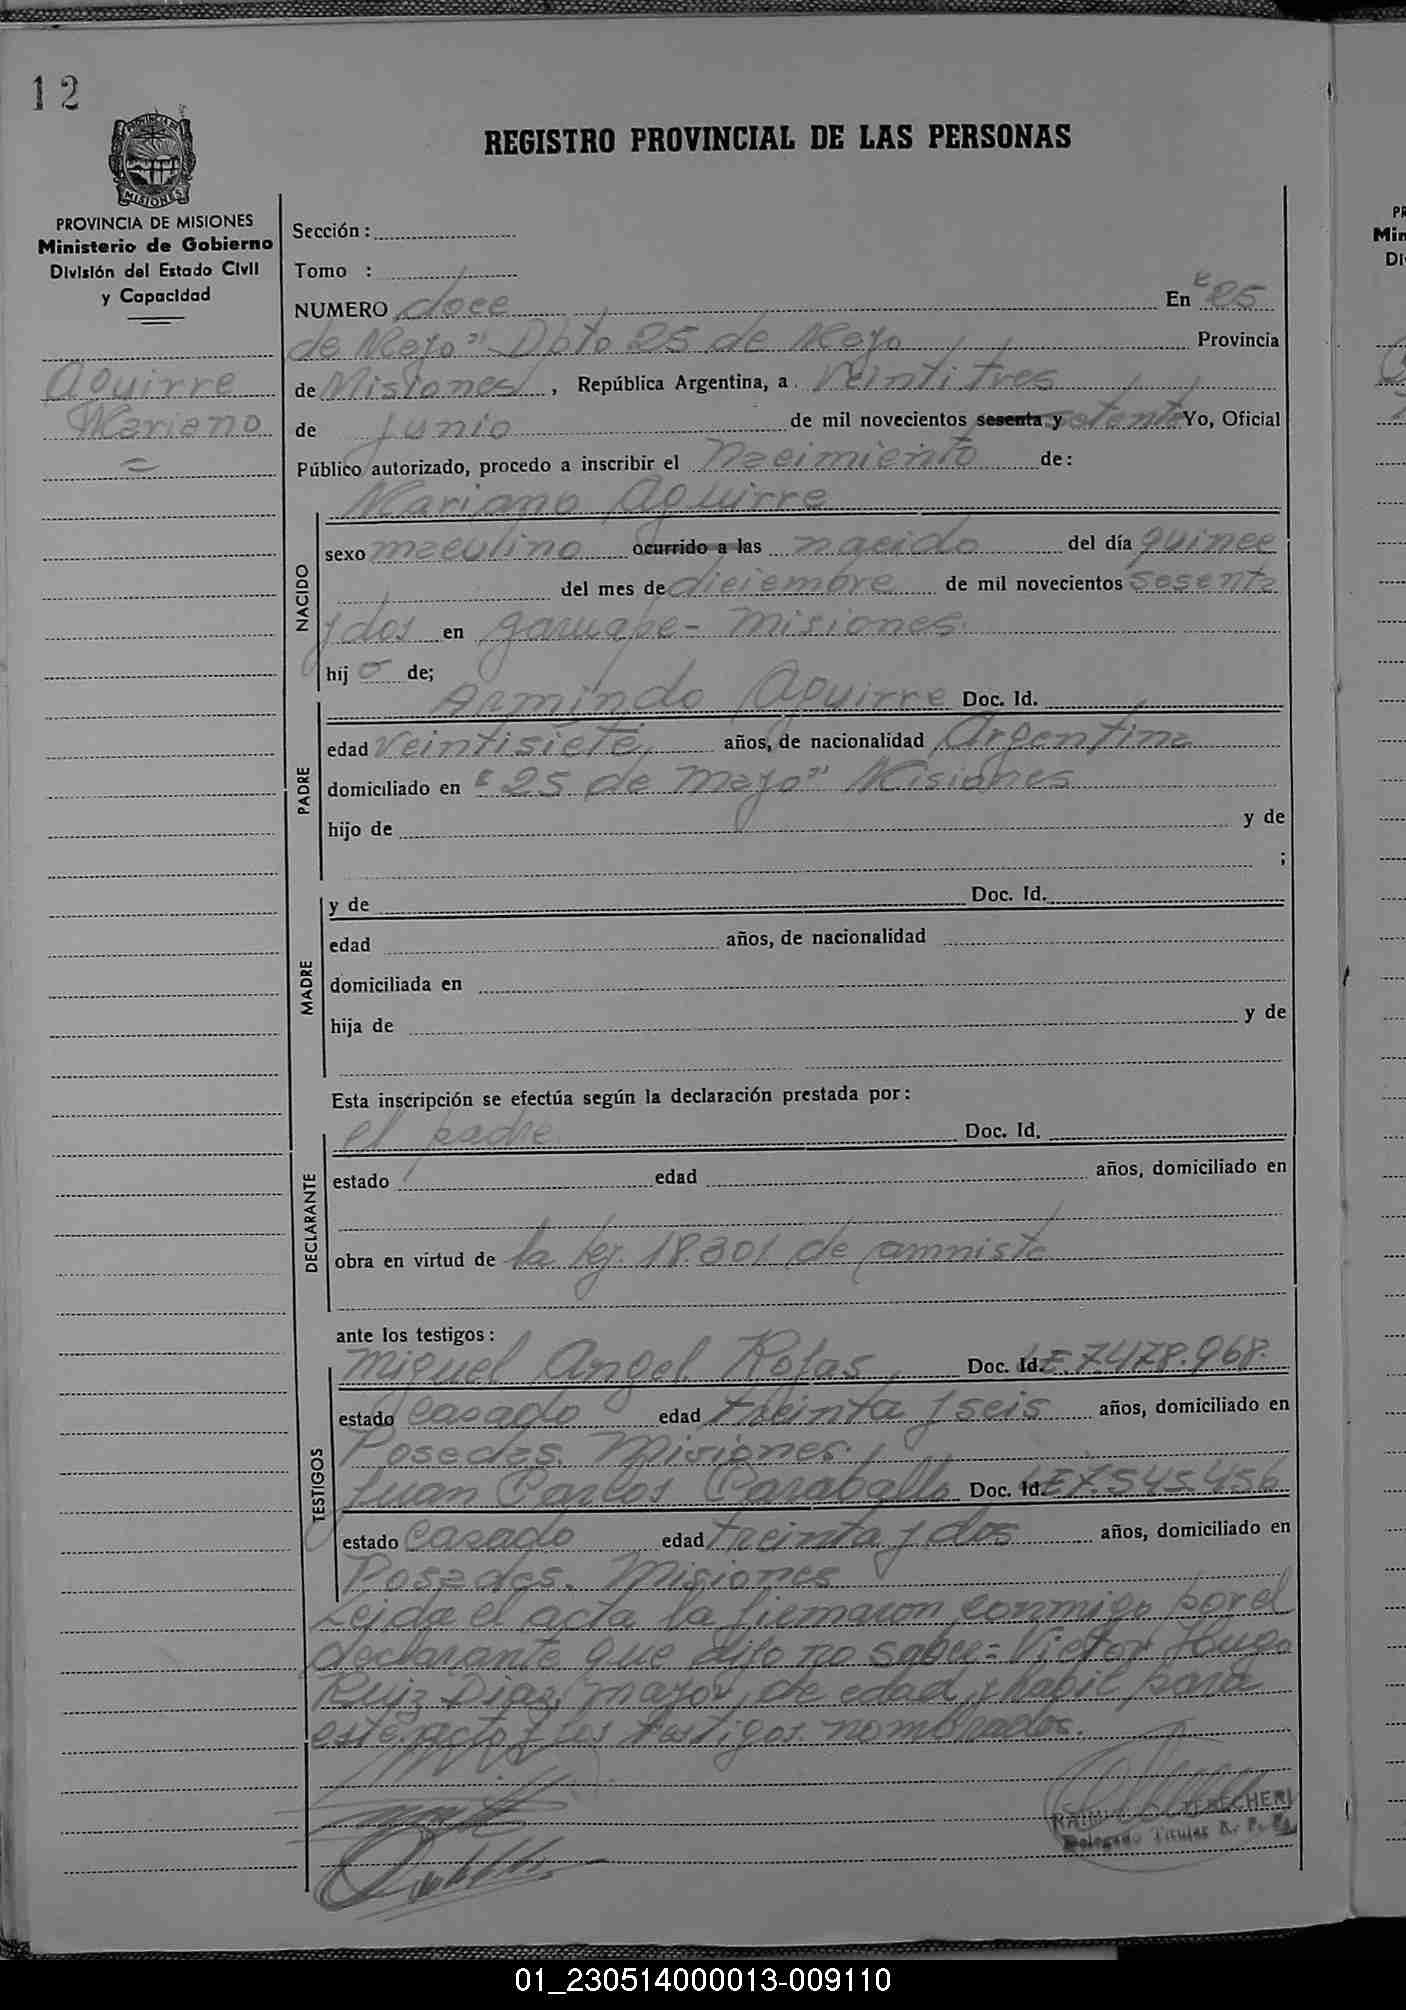 12
PROVINCIA DE MISIONES
Ministerio de Gobierno
División del Estado Civil
y Capacidad
Aguirre
Mariano
REGISTRO PROVINCIAL DE LAS PERSONAS
Sección :
Tomo :
NUMERO doce En "25
de Mayo" Dpto 25 de Mayo Provincia
de Misiones, República Argentina, a veintitres
de junio de mil novecientos sesenta y setenta Yo, Oficial
Público autorizado, procedo a inscribir el Nacimiento de:
Mariano Aguirre
NACIDO
sexo masculino ocurrido a las nacido del día quince
del mes de diciembre de mil novecientos sesenta
y dos en garuape - Misiones.
hijo de;
PADRE
Armindo Aguirre Doc. Id.
edad veintisiete años, de nacionalidad Argentina
domiciliado en "25 de Mayo" Misiones
hijo de y de
;
MADRE
y de Doc. Id.
edad años, de nacionalidad
domiciliada en
hija de y de
Esta inscripción se efectúa según la declaración prestada por:
DECLARANTE
el padre Doc. Id.
estado edad años, domiciliado en
obra en virtud de la ley. 18.301 de amnistia
ante los testigos:
TESTIGOS
Miguel Angel Rojas Doc. Id. LE.7.478.968.
estado Casado edad treinta y seis años, domiciliado en
Posadas. Misiones.
Juan Carlos Caraballo Doc. Id. LE 7.545.456
estado Casado edad treinta y dos años, domiciliado en
Posadas. Misiones
Leida el acta la firmaron conmigo por el
declarante que dijo no saber = Victor Hugo
Ruiz Diaz, mayor de edad y habil para
este acto y los testigos nombrados.
Delegado Titular R. P. P.
PR
Min
Di
01_230514000013-009110